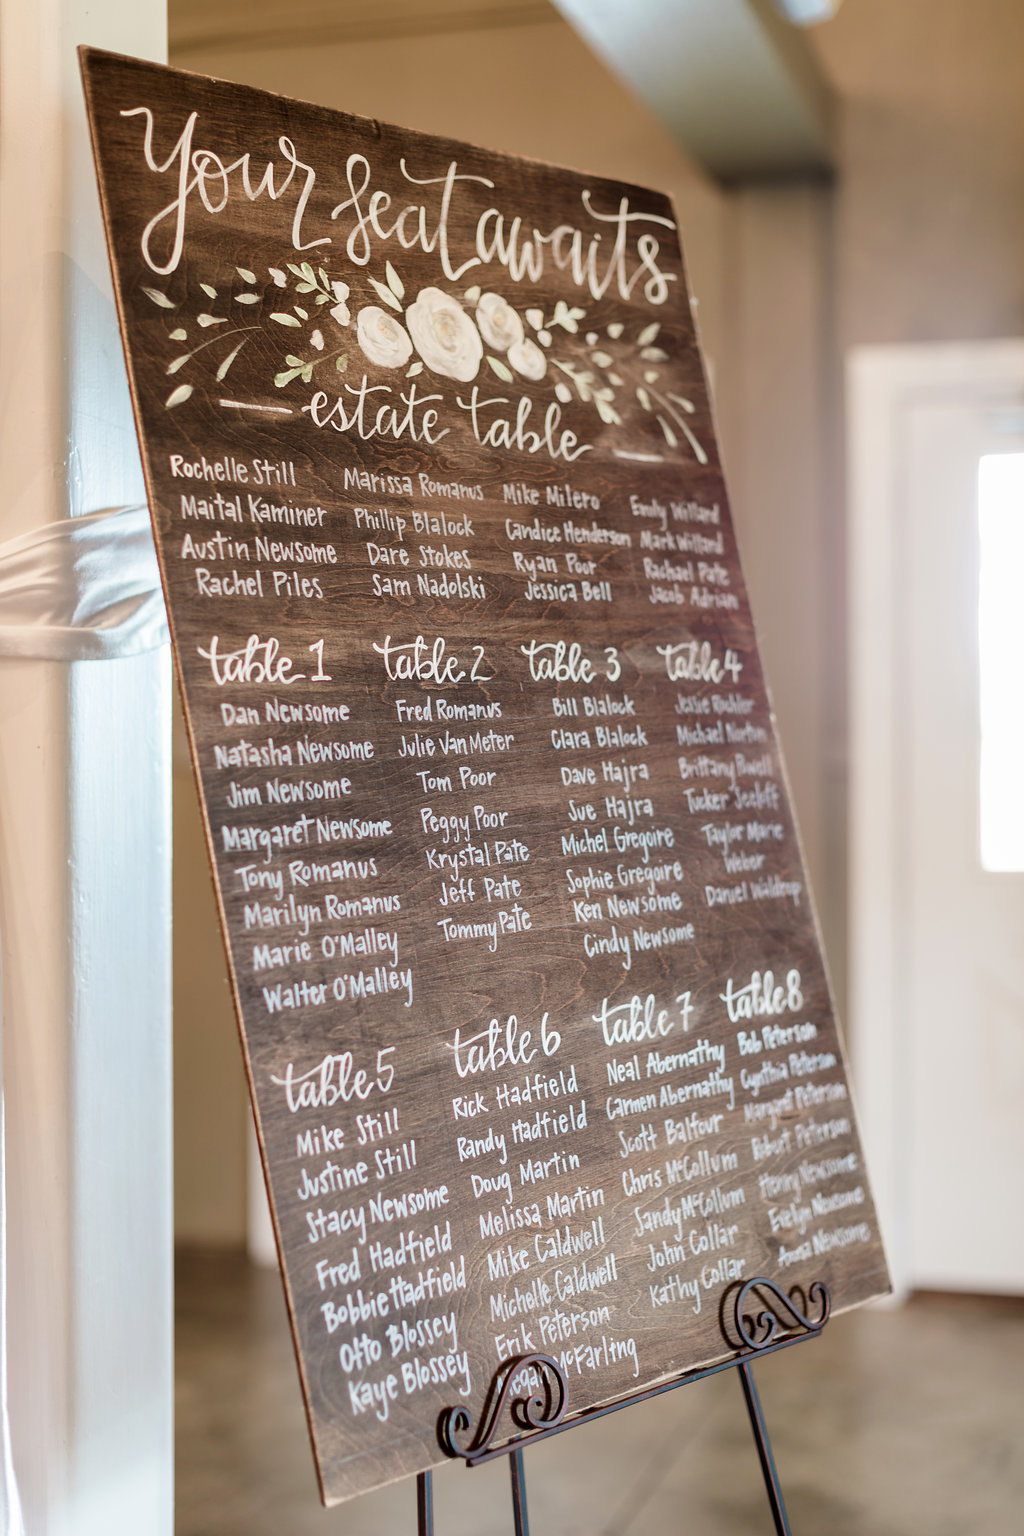 Your Seat awaits
estate table
Rochelle Still
Maital Kaminer
Austin Newsome
Rachel Piles
Marissa Romanus
Phillip Blalock
Dare Stokes
Sam Nadolski
Mike Milero
Candice Henderson
Ryan Poor
Jessica Bell
Emily Willard
Mark Willard
Rachael Pate
Jacob Adrian
table 1
Dan Newsome
Natasha Newsome
Jim Newsome
Margaret Newsome
Tony Romanus
Marilyn Romanus
Marie O'Malley
Walter O'Malley
table 2
Fred Romanus
Julie Van Meter
Tom Poor
Peggy Poor
Krystal Pate
Jeff Pate
Tommy Pate
table 3
Bill Blalock
Clara Blalock
Dave Hajra
Sue Hajra
Michel Gregoire
Sophie Gregoire
Ken Newsome
Cindy Newsome
table 4
Jessie
Michael Norton
Brittany Powell
Tucker
Taylor Marie
Weber
Daniel Waldrop
table 5
Mike Still
Justine Still
Stacy Newsome
Fred Hadfield
Bobbie Hadfield
Otto Blossey
Kaye Blossey
table 6
Rick Hadfield
Randy Hadfield
Doug Martin
Melissa Martin
Mike Caldwell
Michelle Caldwell
Erik Peterson
Megan McFarling
table 7
Neal Abernathy
Carmen Abernathy
Scott Balfour
Chris McCollum
Sandy McCollum
John Collar
Kathy Collar
table 8
Bob Peterson
Cynthia Peterson
Margaret Peterson
Robert Peterson
Henry Newsome
Evelyn Newsome
Anna Newsome